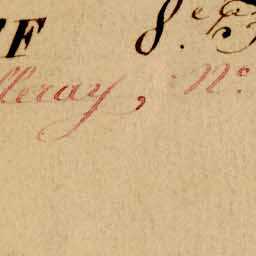 F 8.e
lleray, N.o